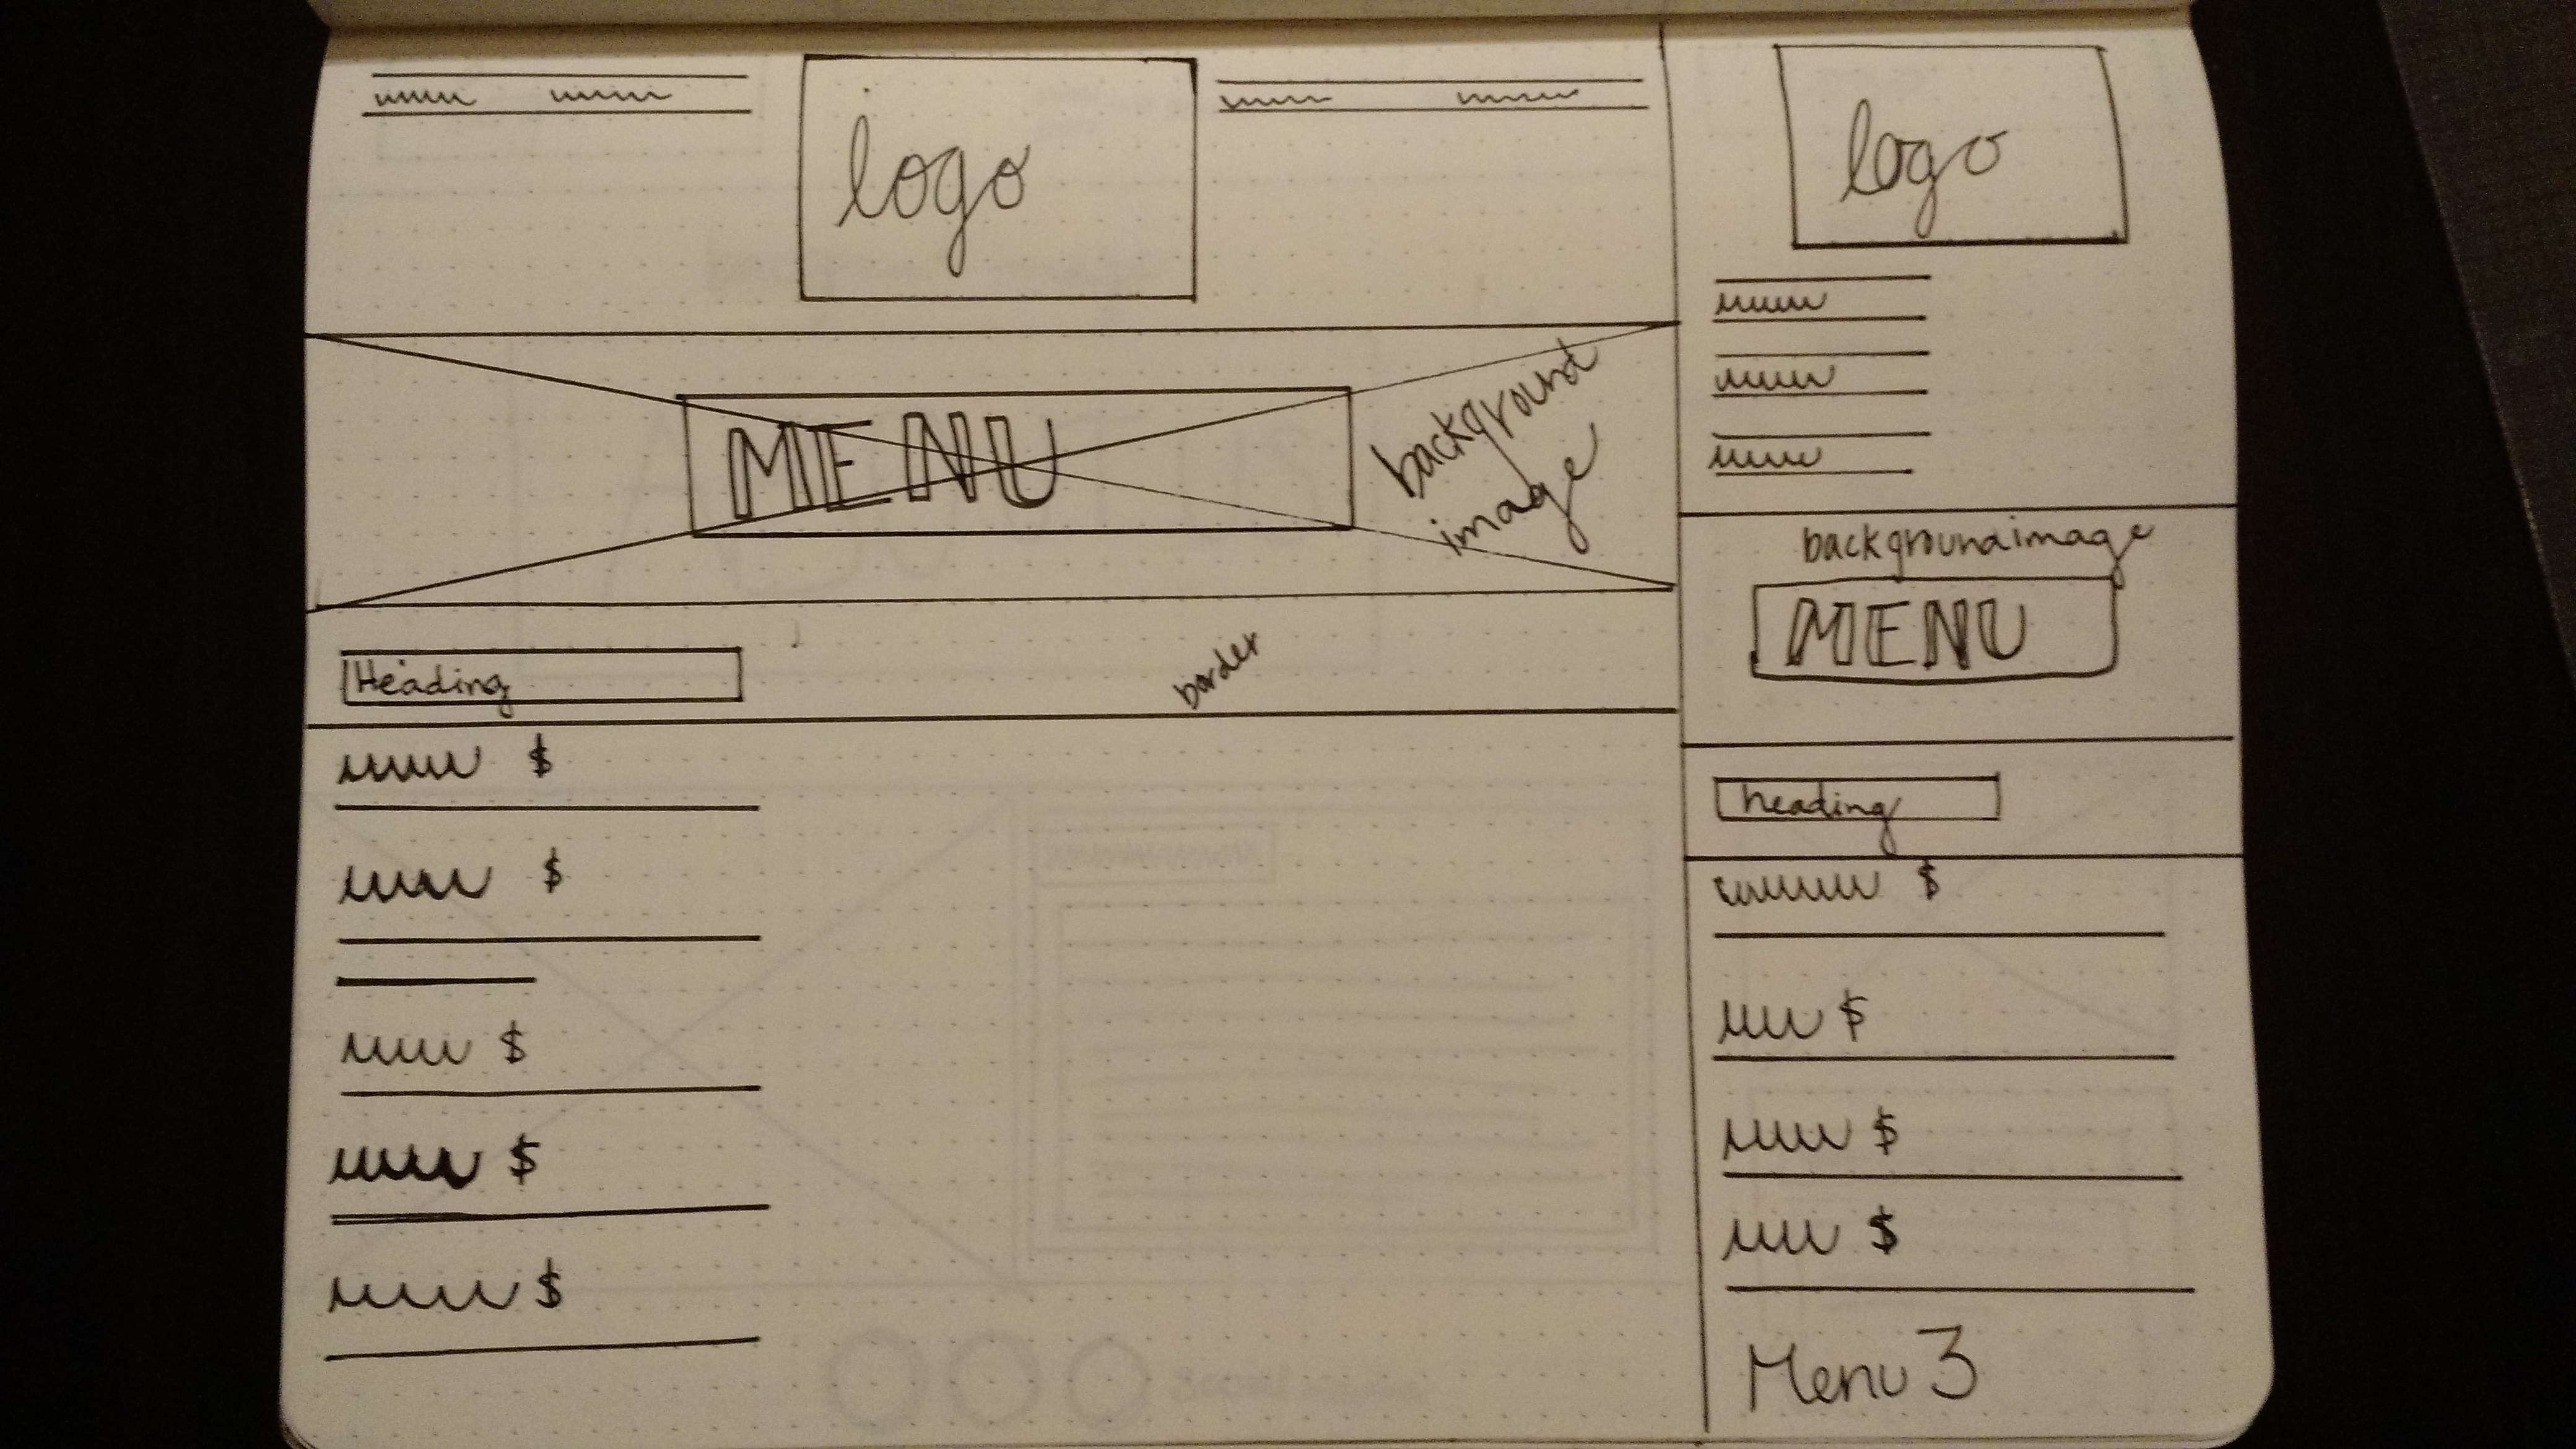 logo
MENU
background
image
Heading
border
$
$
$
$
$
logo
backgroundimage
MENU
heading
$
$
$
$
Menu 3